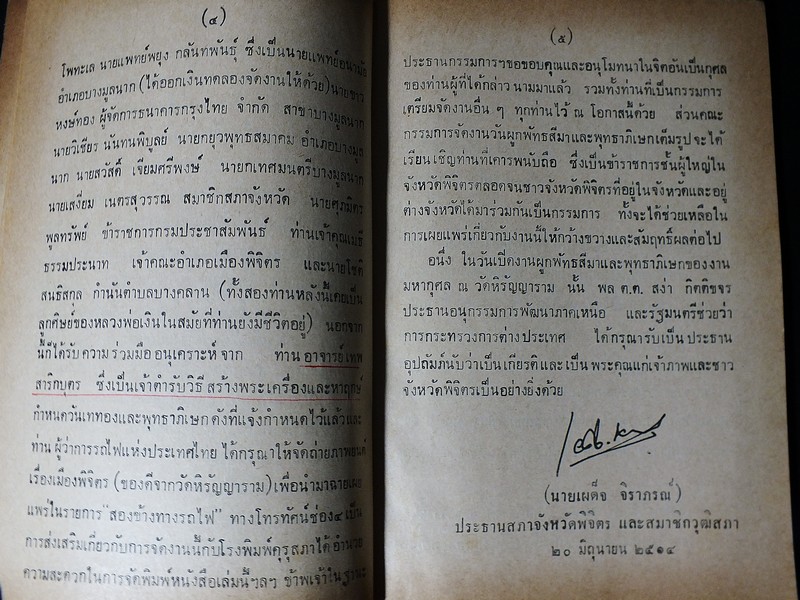 (๔)
โพทะเล นายแพทย์พยุง กลันทพันธุ์ ซึ่งเป็นนายแพทย์อนามัย
อำเภอบางมูลนาก (ได้ออกเงินทดลองจัดงานให้ด้วย) นายขาว
หงษ์ทอง ผู้จัดการธนาคารกรุงไทย จำกัด สาขาบางมูลนาก
นายวิเชียร นันทนพิบูลย์ นายกยุวพุทธสมาคม อำเภอบางมูล
นาก นายสวัสดิ์ เจียมศรีพงษ์ นายกเทศมนตรีบางมูลนาก
นายเสงี่ยม เนตรสุวรรณ สมาชิกสภาจังหวัด นายศุภมิตร
พูลทรัพย์ ข้าราชการกรมประชาสัมพันธ์ ท่านเจ้าคุณเมธี
ธรรมประนาท เจ้าคณะอำเภอเมืองพิจิตร และนายโชติ
สนธิสกล กำนันตำบลบางคลาน (ทั้งสองท่านหลังนี้เคยเป็น
ลูกศิษย์ของหลวงพ่อเงินในสมัยที่ท่านยังมีชีวิตอยู่) นอกจาก
นี้ก็ได้รับความร่วมมืออนุเคราะห์จาก ท่าน อาจารย์เทพ
สาริกบุตร ซึ่งเป็นเจ้าตำรับวิธีสร้างพระเครื่องและหาฤกษ์
กำหนดวันเททองและพุทธาภิเษก ดังที่แจ้งกำหนดไว้แล้ว และ
ท่านผู้ว่าการรถไฟแห่งประเทศไทย ได้กรุณาให้จัดถ่ายภาพยนต์
เรื่องเมืองพิจิตร (ของดีจากวัดหิรัญญาราม) เพื่อนำมาฉายเผย
แพร่ในรายการ "สองข้างทางรถไฟ" ทางโทรทัศน์ช่อง ๔ เป็น
การส่งเสริมเกี่ยวกับการจัดงานนี้กับโรงพิมพ์คุรุสภาได้อำนวย
ความสะดวกในการจัดพิมพ์หนังสือเล่มนี้ฯลฯ ข้าพเจ้าในฐานะ
(๕)
ประธานกรรมการฯขอขอบคุณและอนุโมทนาในจิตอันเป็นกุศล
ของท่านผู้ที่ได้กล่าวนามมาแล้ว รวมทั้งท่านที่เป็นกรรมการ
เตรียมจัดงานอื่น ๆ ทุกท่านไว้ ณ โอกาสนี้ด้วย ส่วนคณะ
กรรมการจัดงานวันผูกพัทธสีมาและพุทธาภิเษกเต็มรูปจะได้
เรียนเชิญท่านที่เคารพนับถือ ซึ่งเป็นข้าราชการชั้นผู้ใหญ่ใน
จังหวัดพิจิตรตลอดจนชาวจังหวัดพิจิตรที่อยู่ในจังหวัดและอยู่
ต่างจังหวัดได้มาร่วมกันเป็นกรรมการ ทั้งจะได้ช่วยเหลือใน
การเผยแพร่เกี่ยวกับงานนี้ให้กว้างขวางและสัมฤทธิ์ผลต่อไป
อนึ่ง ในวันเปิดงานผูกพัทธสีมาและพุทธาภิเษกของงาน
มหากุศล ณ วัดหิรัญญาราม นั้น พล ต.ต. สง่า กิตติขจร
ประธานอนุกรรมการพัฒนาภาคเหนือ และรัฐมนตรีช่วยว่า
การกระทรวงการต่างประเทศ ได้กรุณารับเป็นประธาน
อุปถัมภ์นับว่าเป็นเกียรติและเป็นพระคุณแก่เจ้าภาพและชาว
จังหวัดพิจิตรเป็นอย่างยิ่งด้วย
(นายเผด็จ จิราภรณ์)
ประธานสภาจังหวัดพิจิตร และสมาชิกวุฒิสภา
๒๐ มิถุนายน ๒๕๑๔